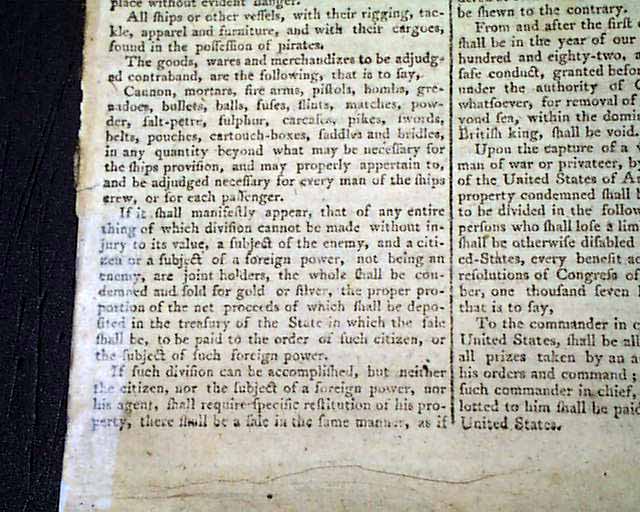 place without evident danger.
All ſhips or other veſſels, with their rigging, tac-
kle, apparel and furniture, and with their cargoes,
found in the poſſeſſion of pirates.
The goods, wares and merchandizes to be adjudg-
ed contraband, are the following, that is to ſay,
Cannon, mortars, fire arms, piſtols, bombs, gre-
nadoes, bullets, balls, fuſes, flints, matches, pow-
der, ſalt-petre, ſulphur, carcaſes, pikes, ſwords,
belts, pouches, cartouch-boxes, ſaddles and bridles,
in any quantity beyond what may be neceſſary for
the ſhips proviſion, and may properly appertain to,
and be adjudged neceſſary for every man of the ſhips
crew, or for each paſſenger.
If it ſhall manifeſtly appear, that of any entire
thing of which diviſion cannot be made without in-
jury to its value, a ſubject of the enemy, and a citi-
zen or a ſubject of a foreign power, not being an
enemy, are joint holders, the whole ſhall be con-
demned and ſold for gold or ſilver, the proper pro-
portion of the net proceeds of which ſhall be depo-
ſited in the treaſury of the State in which the ſale
ſhall be, to be paid to the order of ſuch citizen, or
the ſubject of ſuch foreign power.
If ſuch diviſion can be accompliſhed, but neither
the citizen, nor the ſubject of a foreign power, nor
his agent, ſhall require ſpecific reſtitution of his pro-
perty, there ſhall be a ſale in the ſame manner, as if
be ſhewn to the contrary.
From and after the firſt
ſhall be in the year of our
hundred and eighty-two, a
ſafe conduct, granted before
under the authority of C
whatſoever, for removal of
yond ſea, within the domin
Britiſh king, ſhall be void.
Upon the capture of a v
man of war or privateer, by
of the United States of Am
property condemned ſhall b
to be divided in the follow
perſons who ſhall loſe a lim
ſhall be otherwiſe diſabled
ed-States, every benefit ac
reſolutions of Congreſs of
ber, one thouſand ſeven h
that is to ſay,
To the commander in c
United States, ſhall be all
all prizes taken by an a
his orders and command;
ſuch commander in chief,
lotted to him ſhall be paid
United States.